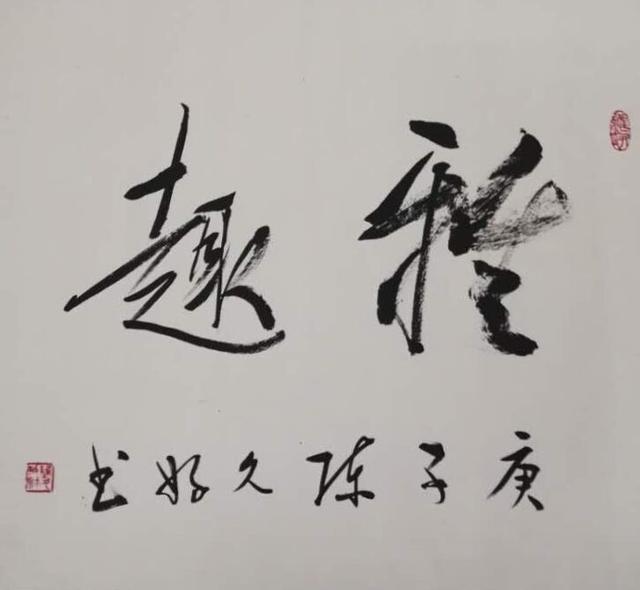 雅趣
庚子陈久好书